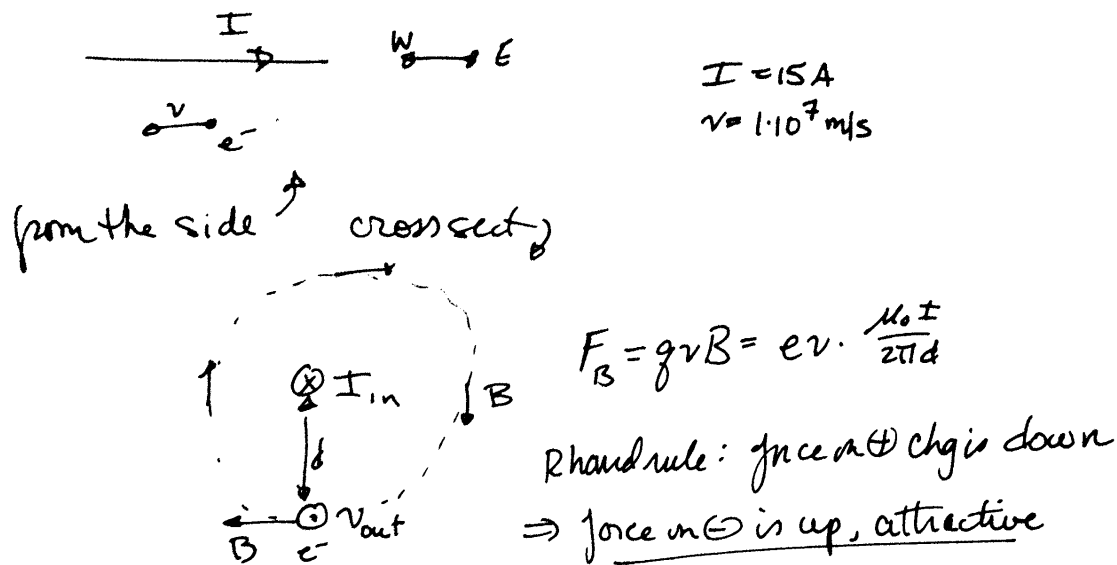 I
W E
I = 15 A
v = 1·10⁷ m/s
v e⁻
from the side cross sect
F_B = qvB = ev · μ₀I / 2πd
⊗ I in
B
d
R hand rule: force on ⊕ chg is down
⊙ v out
B e⁻
⇒ force on ⊖ is up, attractive